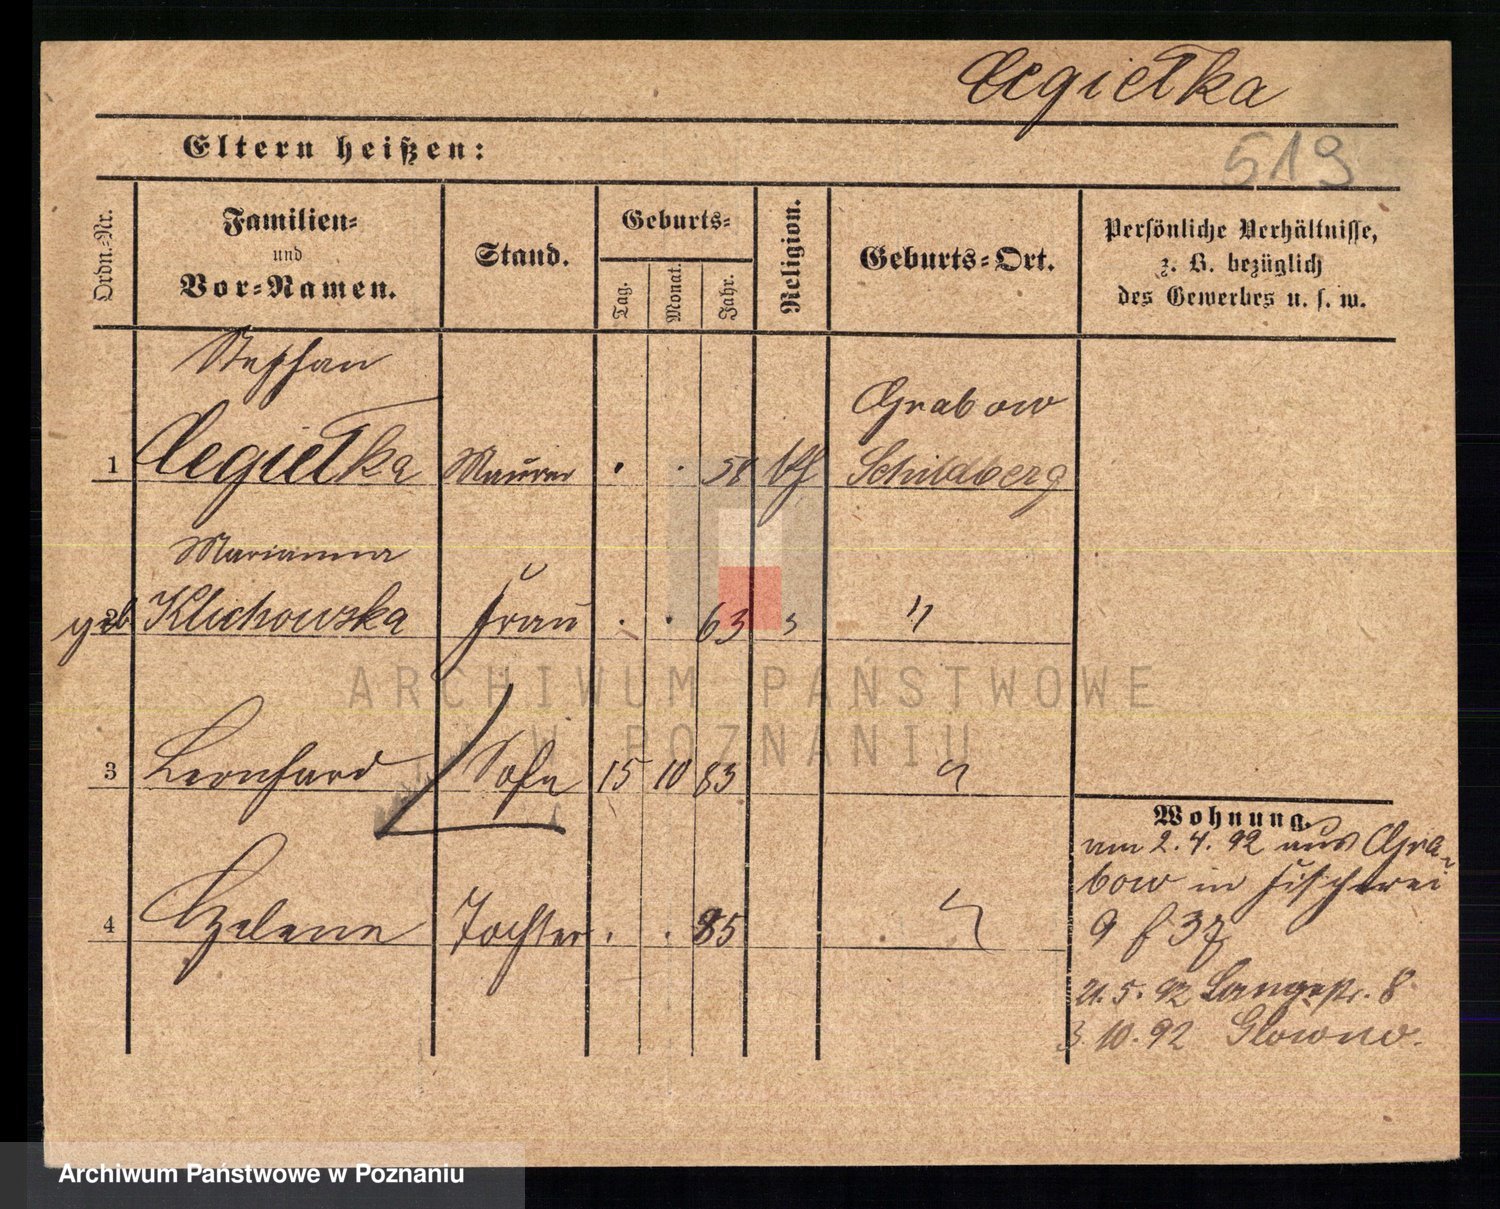 Cegiełka
519
Eltern heißen:
Ordn.-Nr.
Familien-
und
Vor-Namen.
Stand.
Geburts-
Tag.
Monat.
Jahr.
Religion.
Geburts-Ort.
Persönliche Verhältnisse,
z. B. bezüglich
des Gewerbes u. s. w.
Stephan
Grabow
1 Cegiełka Maurer . . 58 kth Schildberg
Marianna
geb 2 Klichowska Frau . . 63 " "
3 Leonhard Sohn 15 10 83 "
4 Helene Tochter . . 85 "
Wohnung.
am 2.4.92 aus Gra-
bow in Fischerei
9 b 37
21.5.92 Langestr. 8
3.10.92 Glowno.
ARCHIWUM PAŃSTWOWE
W POZNANIU
Archiwum Państwowe w Poznaniu